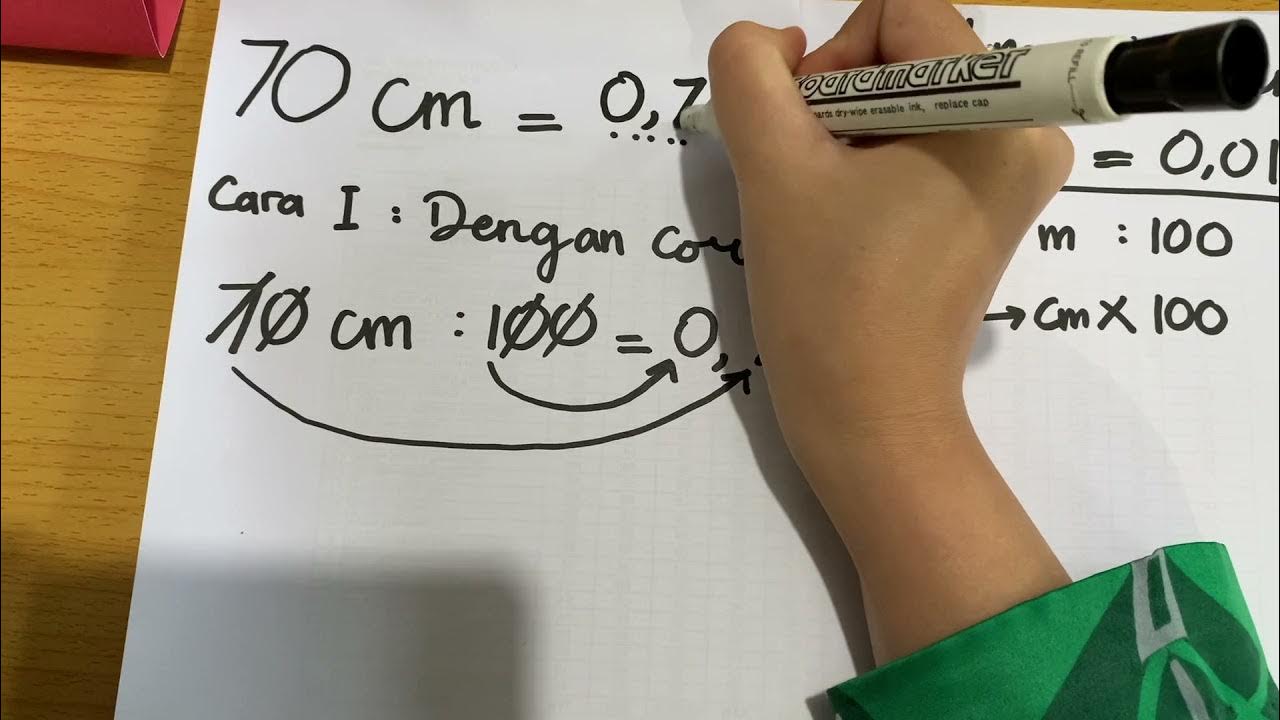 70 cm = 0,7
= 0,01
Cara I : Dengan
m : 100
70 cm : 100 = 0,
→ cm X 100
boardmarker
dry-wipe erasable ink, replace cap
REFILL